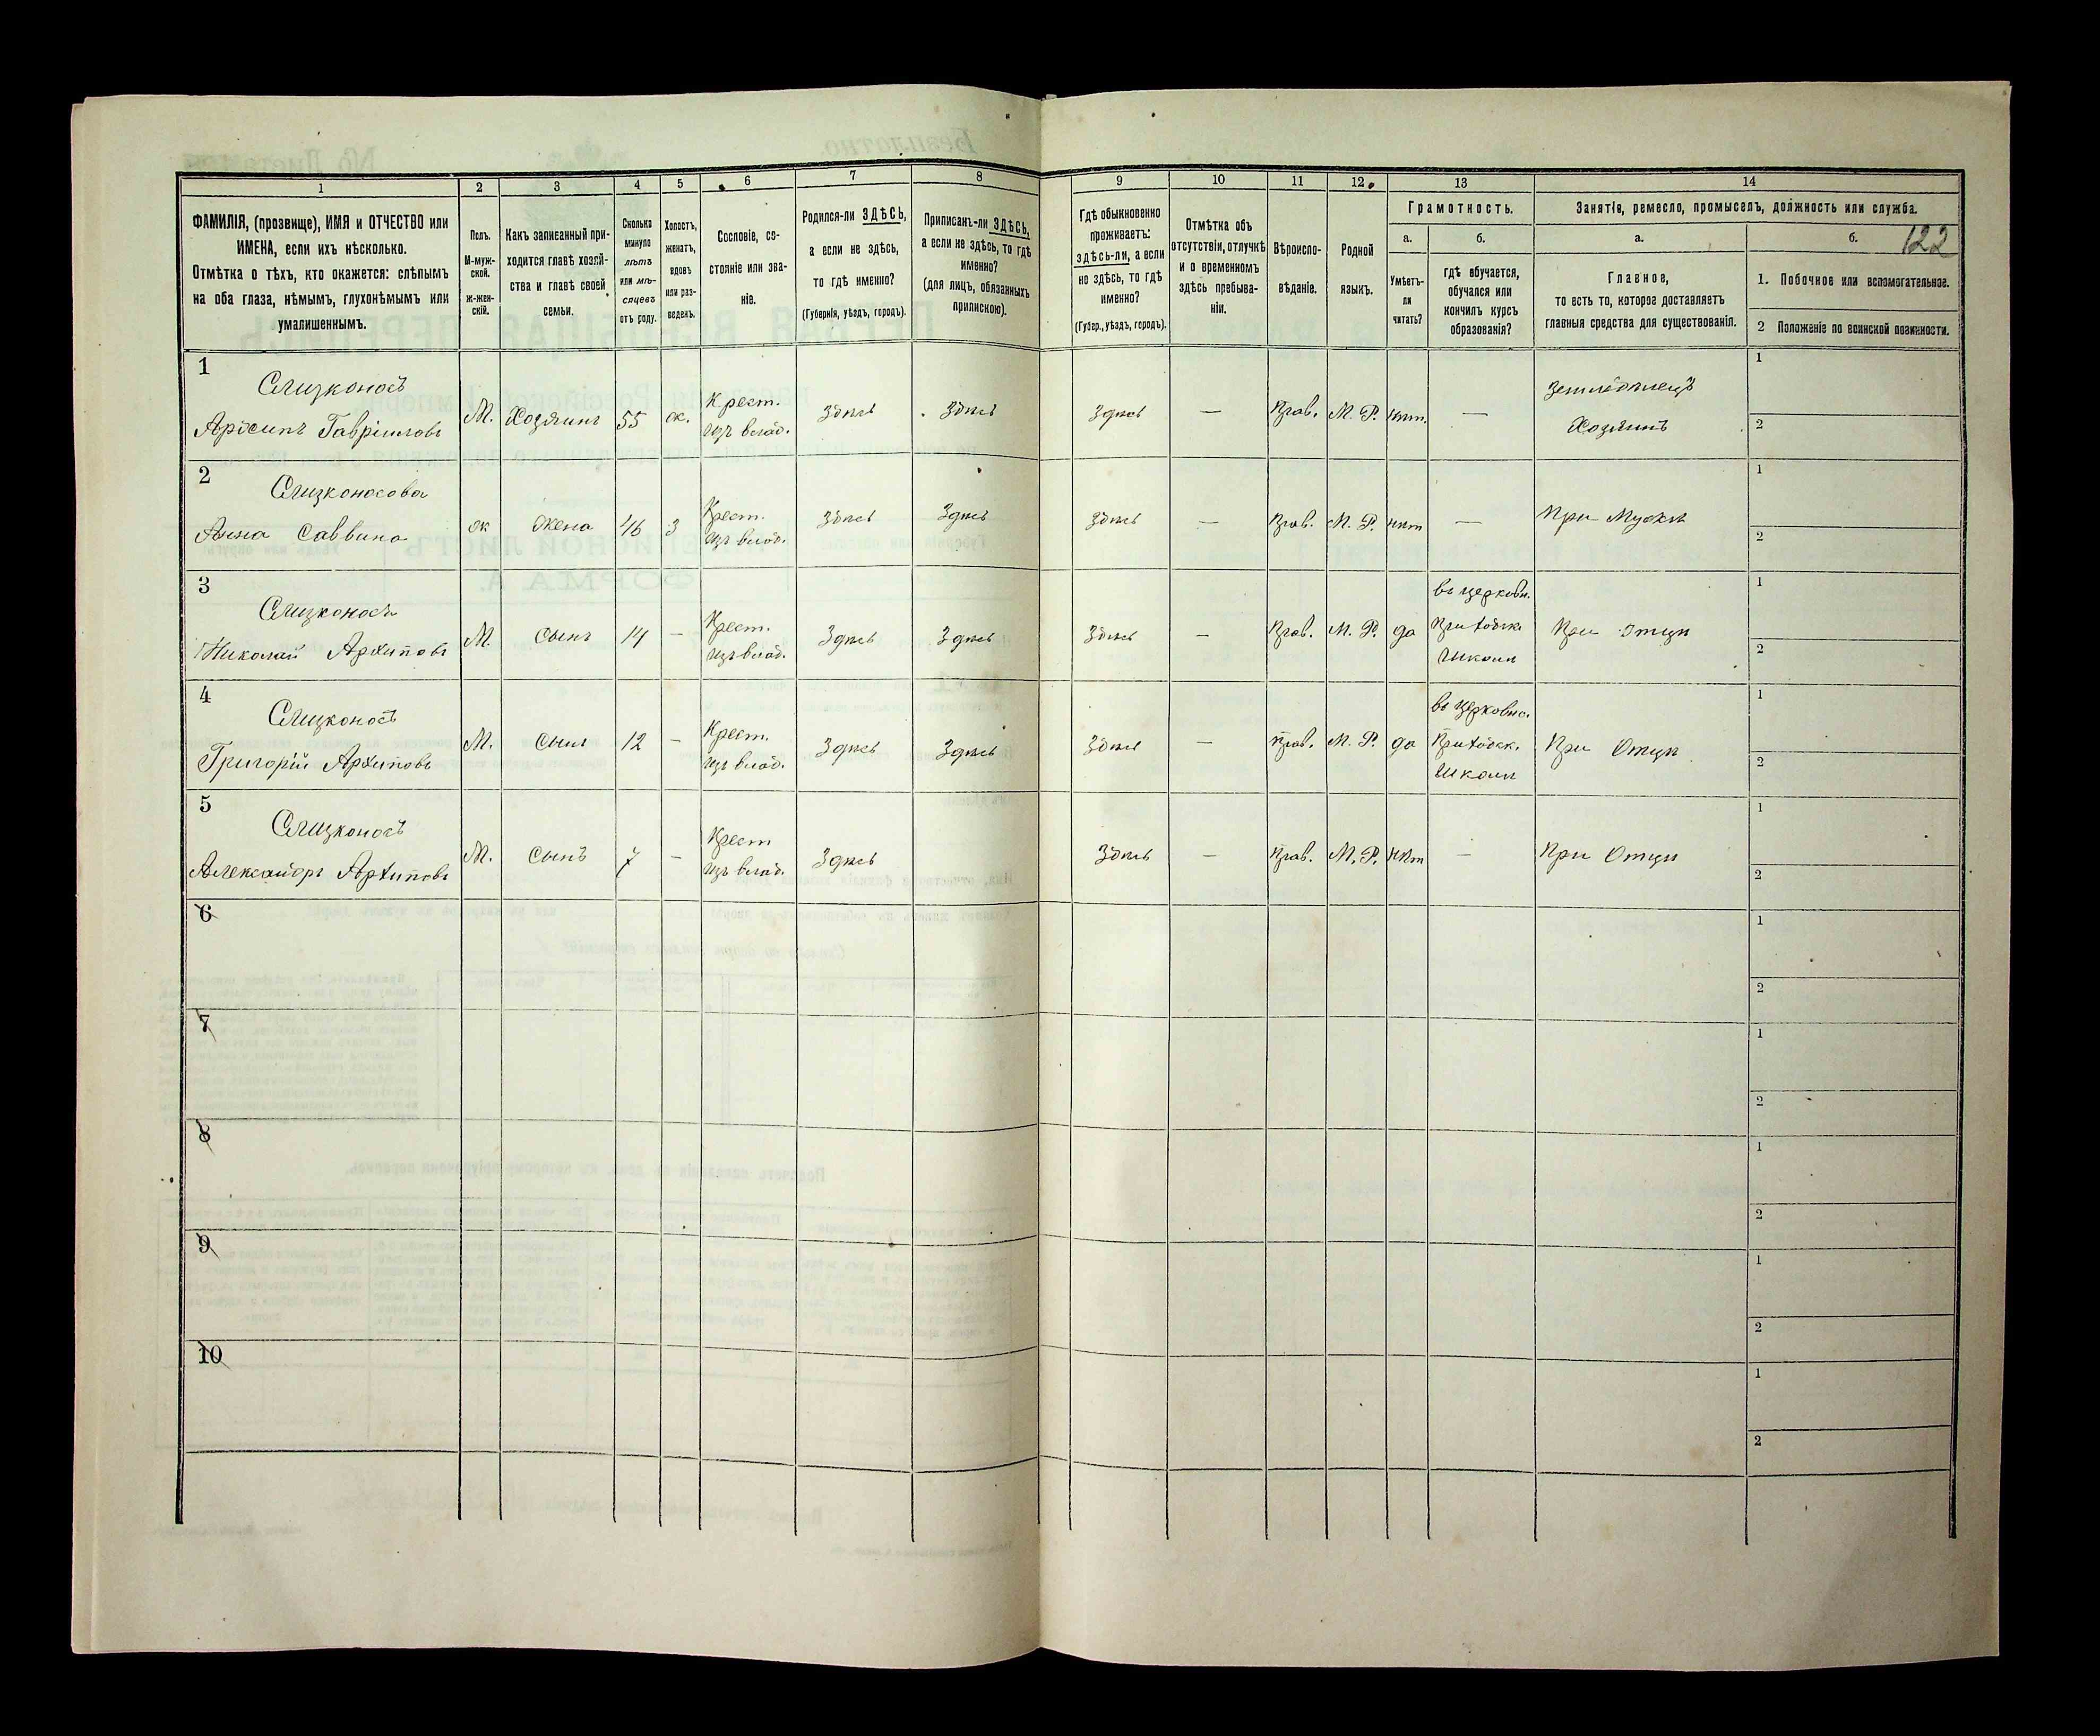 1 2 3 4 5 6 7 8 9 10 11 12 13 14
ФАМИЛІЯ, (прозвище), ИМЯ и ОТЧЕСТВО или
ИМЕНА, если ихъ нѣсколько.
Отмѣтка о тѣхъ, кто окажется: слѣпымъ
на оба глаза, нѣмымъ, глухонѣмымъ или
умалишеннымъ.
Полъ.
М-муж-
ской.
Ж-жен-
скій.
Какъ записанный при-
ходится главѣ хозяй-
ства и главѣ своей
семьи.
Сколько
минуло
лѣтъ
или мѣ-
сяцевъ
отъ роду.
Холостъ,
женатъ,
вдовъ
или раз-
веденъ.
Сословіе, со-
стояніе или зва-
ніе.
Родился-ли ЗДѢСЬ,
а если не здѣсь,
то гдѣ именно?
(Губернія, уѣздъ, городъ).
Приписанъ-ли ЗДѢСЬ,
а если не здѣсь, то гдѣ
именно?
(для лицъ, обязанныхъ
припискою).
Гдѣ обыкновенно
проживаетъ:
здѣсь-ли, а если
не здѣсь, то гдѣ
именно?
(Губер., уѣздъ, городъ).
Отмѣтка объ
отсутствіи, отлучкѣ
и о временномъ
здѣсь пребыва-
ніи.
Вѣроиспо-
вѣданіе.
Родной
языкъ.
Грамотность.
а.
Умѣетъ-
ли
читать?
б.
гдѣ обучается,
обучался или
кончилъ курсъ
образованія?
Занятіе, ремесло, промыселъ, должность или служба.
а.
Главное,
то есть то, которое доставляетъ
главныя средства для существованія.
б.
122
1. Побочное или вспомогательное.
2 Положеніе по воинской повинности.
1
Слизконосъ
Архипъ Гавріиловъ
М. Хозяинъ 55 ж. Крест.
изъ влад.
Здѣсь Здѣсь Здѣсь — Прав. М. Р. нѣт. — Земледѣлецъ
Хозяинъ
1
2
2
Слизконосова
Анна Саввина
ж Жена 46 з Крест.
изъ влад.
Здѣсь Здѣсь Здѣсь — Прав. М. Р. нѣт — При Мужѣ
1
2
3
Слизконосъ
Николай Архиповъ
М. Сынъ 14 — Крест.
изъ влад.
Здѣсь Здѣсь Здѣсь — Прав. М. Р. да въ церковн.
Приходск.
Школѣ
При Отцѣ
1
2
4
Слизконосъ
Григорій Архиповъ
М. Сынъ 12 — Крест.
изъ влад.
Здѣсь Здѣсь Здѣсь — Прав. М. Р. да въ Церковно.
Приходск.
Школѣ
При Отцѣ
1
2
5
Слизконосъ
Александръ Архиповъ
М. Сынъ 7 — Крест
изъ влад.
Здѣсь Здѣсь — Прав. М. Р. нѣт — При Отцѣ
1
2
6
1
2
7
1
2
8
1
2
9
1
2
10
1
2